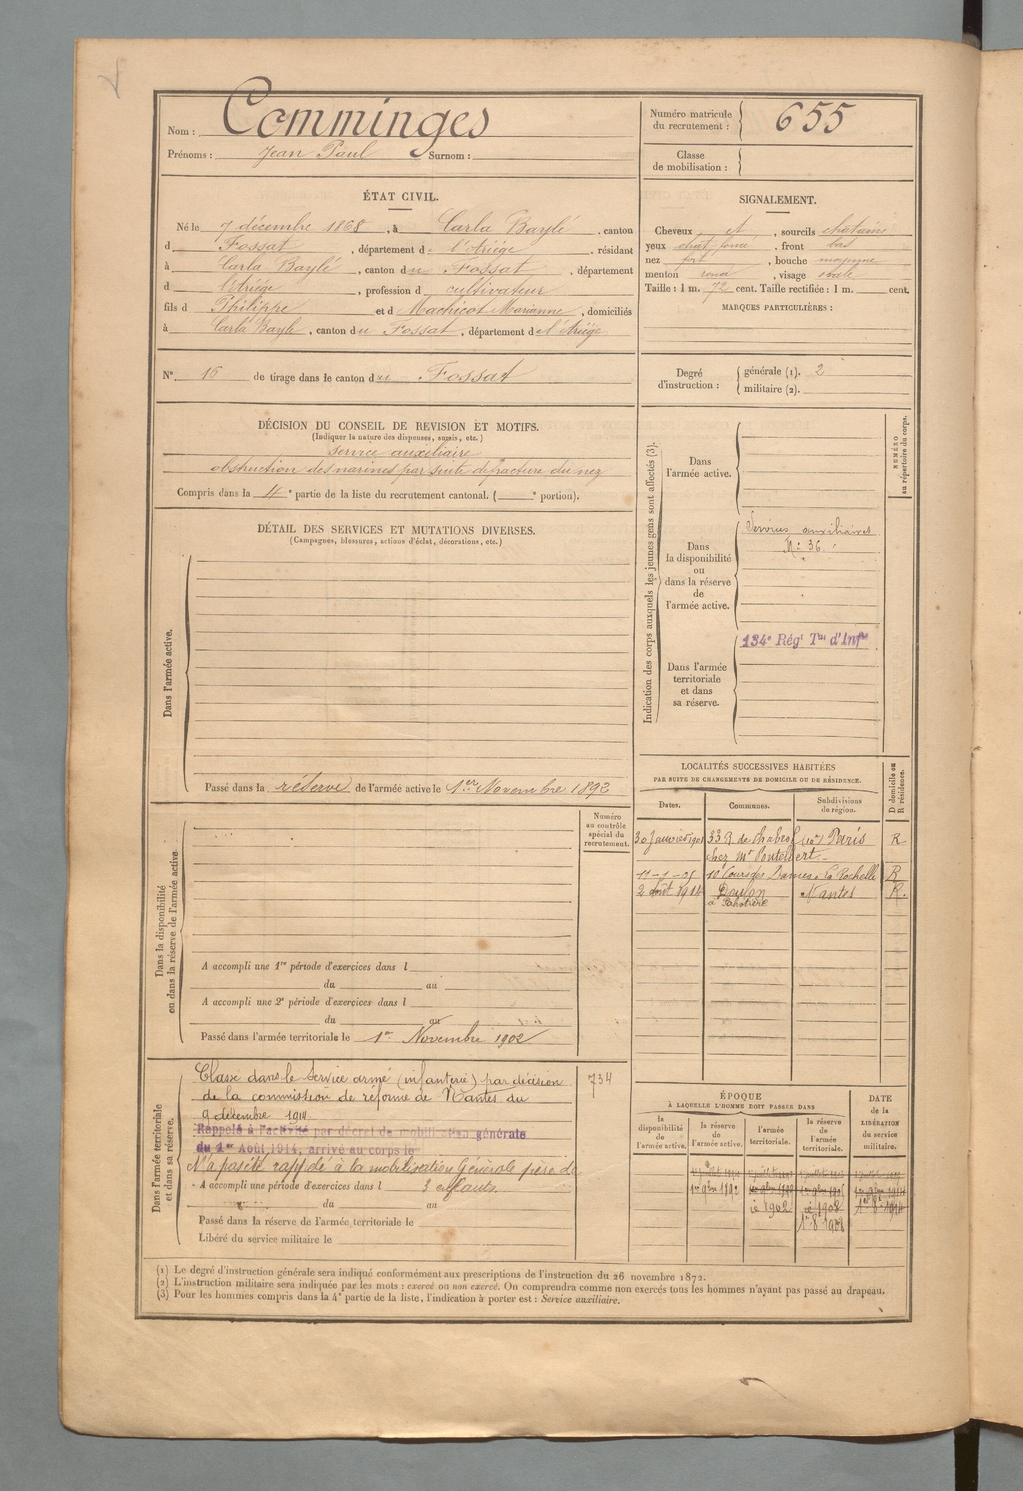 Nom : Comminges
Prénoms : Jean Paul Surnom :
Numéro matricule du recrutement : 655
Classe de mobilisation :
ÉTAT CIVIL.
Né le 7 décembre 1868, à Carla Baylé, canton
d Fossat, département de l'Ariége, résidant
à Carla Baylé, canton du Fossat, département
d l'Ariége, profession d cultivateur
fils d Philippe et d Machicot Marianne, domiciliés
à Carla Bayle, canton du Fossat, département de l'Ariége
SIGNALEMENT.
Cheveux et, sourcils chatains
yeux chat foncé, front bas
nez fort, bouche moyenne
menton rond, visage ovale
Taille : 1 m. 72 cent. Taille rectifiée : 1 m. cent.
MARQUES PARTICULIÈRES :
N° 16 de tirage dans le canton du Fossat
Degré d'instruction : générale (1). 2
militaire (2).
DÉCISION DU CONSEIL DE REVISION ET MOTIFS.
(Indiquer la nature des dispenses, sursis, etc.)
Service auxiliaire
obstruction des narines par suite de fracture du nez
Compris dans la 4e partie de la liste du recrutement cantonal. ( e portion).
DÉTAIL DES SERVICES ET MUTATIONS DIVERSES.
(Campagnes, blessures, actions d'éclat, décorations, etc.)
Dans l'armée active.
Passé dans la réserve de l'armée active le 1er Novembre 1892
Indication des corps auxquels les jeunes gens sont affectés (3).
NUMÉRO au répertoire du corps.
Dans l'armée active.
Dans la disponibilité ou dans la réserve de l'armée active.
Services auxiliaires
N° 36
Dans l'armée territoriale et dans sa réserve.
134e Régt Tal d'Infie
LOCALITÉS SUCCESSIVES HABITÉES
PAR SUITE DE CHANGEMENTS DE DOMICILE OU DE RÉSIDENCE.
D domicile ou R résidence.
Dates. Communes. Subdivisions de région.
30 Janvier 1901 33 R. de Chabrol (10e) Paris R
chez Mr
11-1-05 10 Cours des Dames La Rochelle R
2 août 1914 Doulon Nantes R.
Dans la disponibilité ou dans la réserve de l'armée active
Numéro au contrôle spécial du recrutement.
A accompli une 1re période d'exercices dans l
du au
A accompli une 2e période d'exercices dans l
du au
Passé dans l'armée territoriale le 1er Novembre 1902
Dans l'armée territoriale et dans sa réserve.
Classé dans le Service armé (infanterie) par décision 734
de la commission de réforme de Nantes du
9 décembre 1914.
Rappelé à l'activité par décret de mobilisation générale
du 1er Août 1914, arrivé au corps le
N'a pas été rappelé à la mobilisation Générale père de
A accompli une période d'exercices dans l 3 enfants.
du au
Passé dans la réserve de l'armée territoriale le
Libéré du service militaire le
ÉPOQUE À LAQUELLE L'HOMME DOIT PASSER DANS
DATE de la LIBÉRATION du service militaire.
la disponibilité de l'armée active. la réserve de l'armée active. l'armée territoriale. la réserve de l'armée territoriale.
1er 9bre 1892
1902 1908
(1) Le degré d'instruction générale sera indiqué conformément aux prescriptions de l'instruction du 26 novembre 1872.
(2) L'instruction militaire sera indiquée par les mots : exercé ou non exercé. On comprendra comme non exercés tous les hommes n'ayant pas passé au drapeau.
(3) Pour les hommes compris dans la 4e partie de la liste, l'indication à porter est : Service auxiliaire.